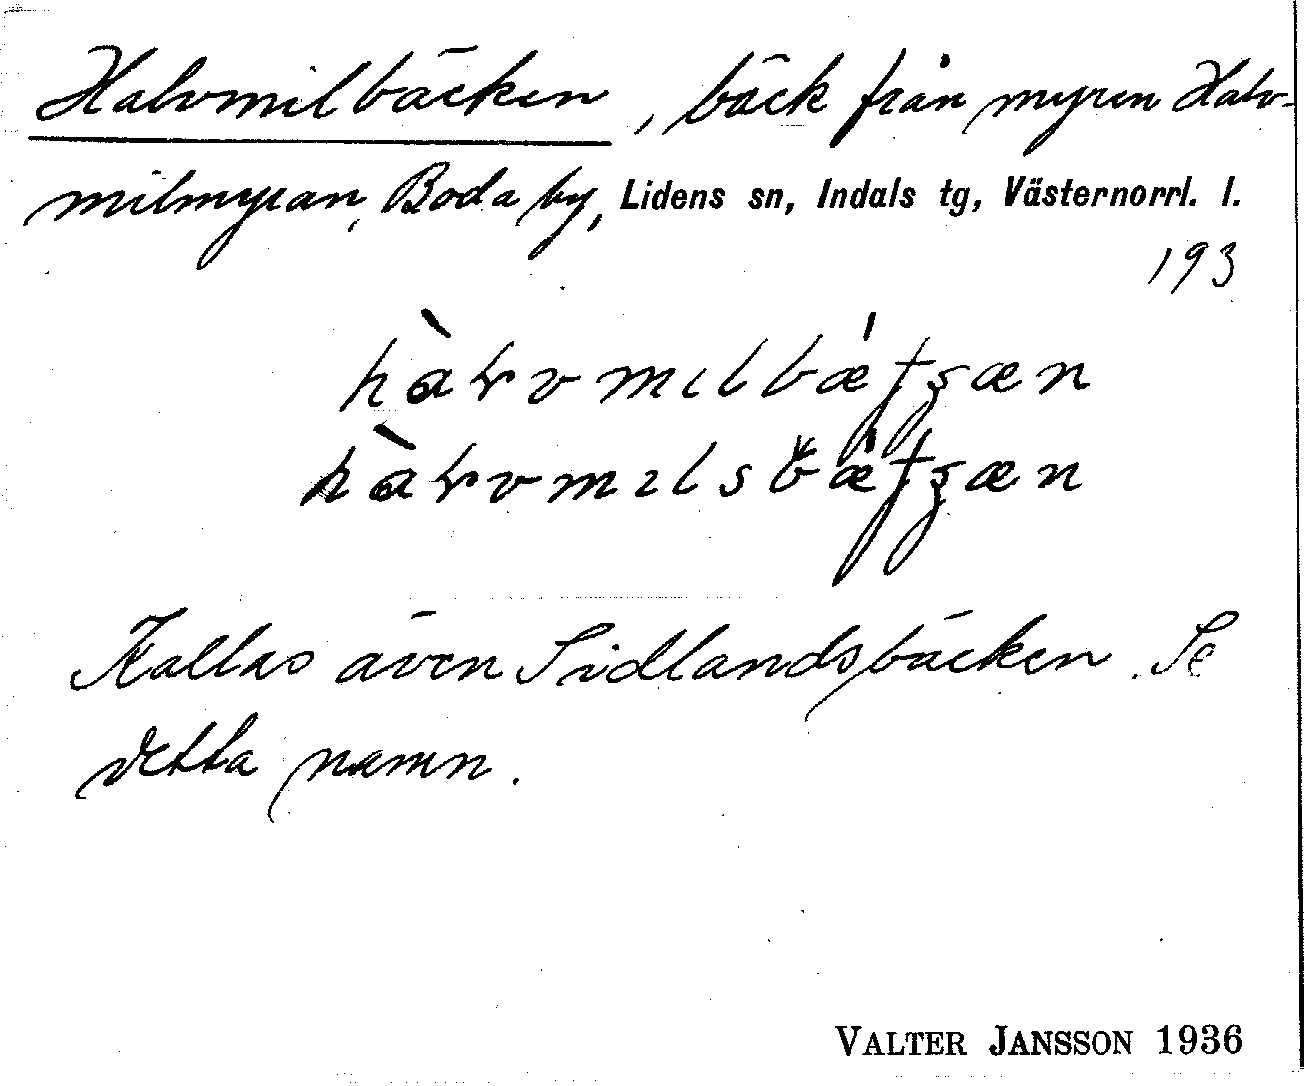 Halvmilbäcken, bäck från myren Halv-
milmyran, Boda by, Lidens sn, Indals tg, Västernorrl. l.
193
hàlvmılbǽʃʒæn
hàlvmılsbǽʃʒæn
Kallas även Sidlandsbäcken. Se
detta namn.
VALTER JANSSON 1936